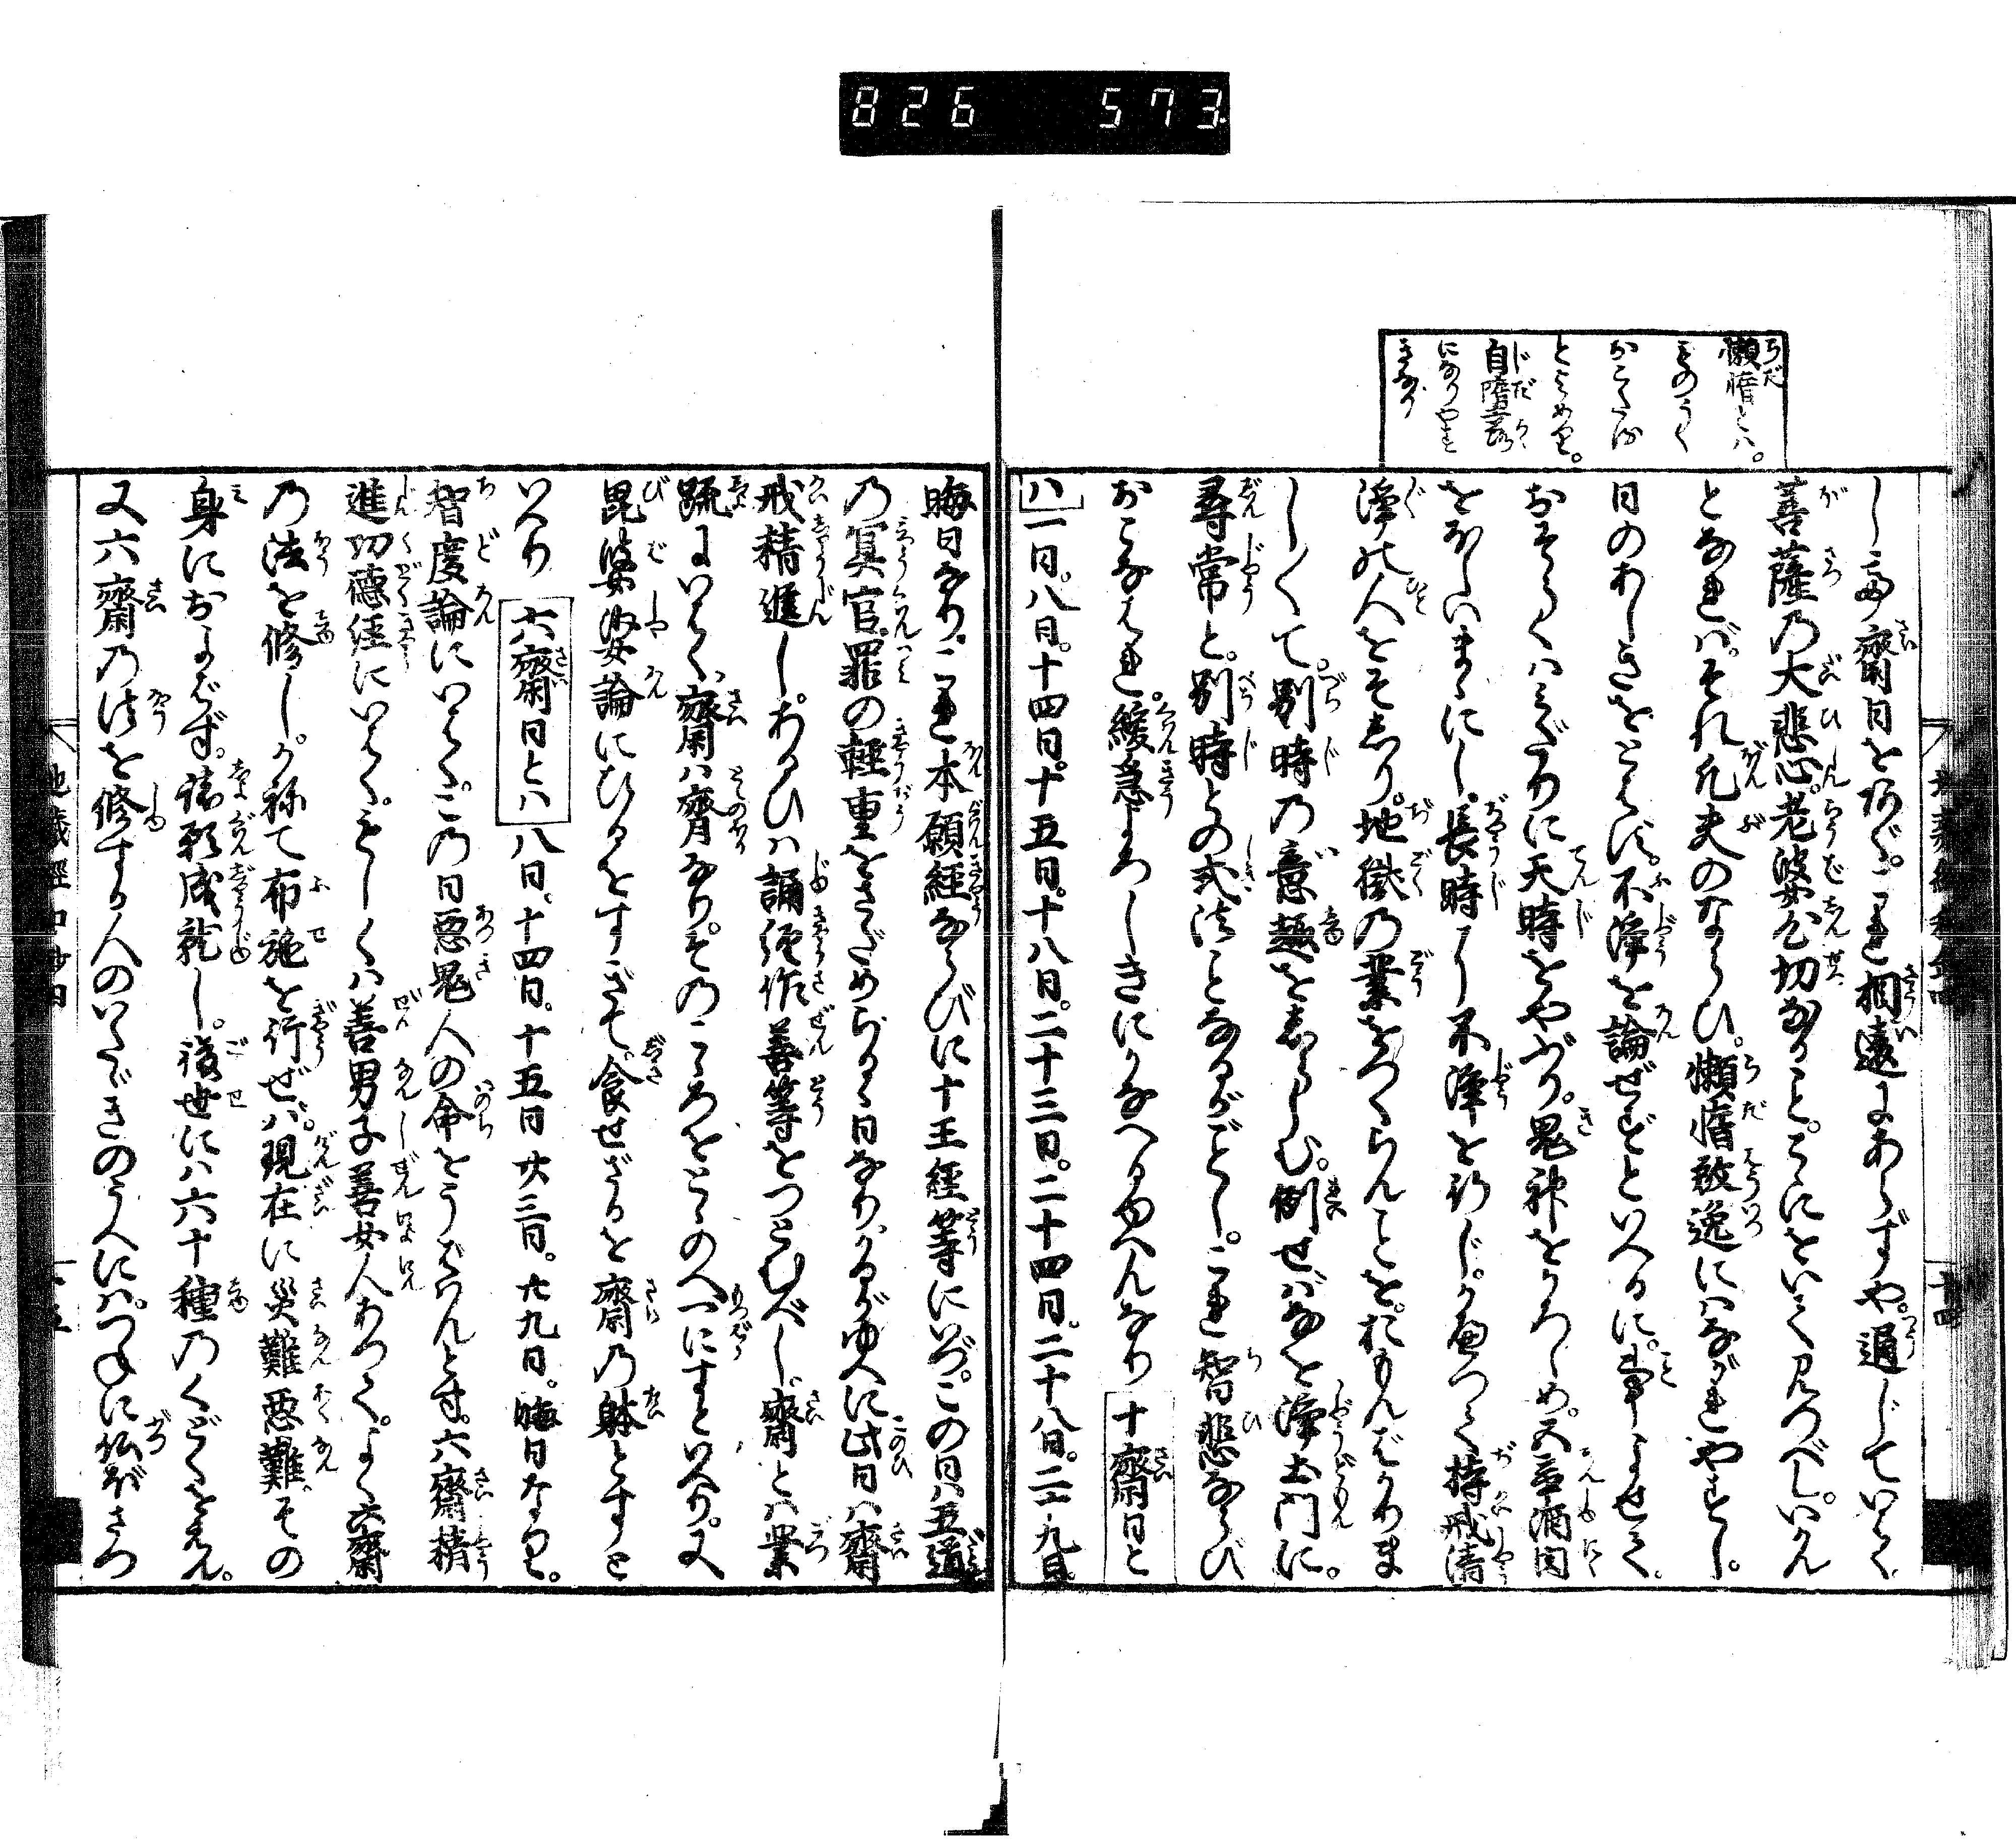 826 573
懶惰とハ。
ものうく
おこたる
とよめり。
自墮落
になりやす
きなり
して齋日をあぐ。これ相違にあらずや。通じていはく
菩薩乃大悲心。老婆心切なること。こゝにをいて見つべし。いかん
となれば。それ凡夫のならひ。懶惰放逸にハながれやすし。
日のあしきをとはず。不淨を論ぜずといへるに。事よせて。
おそらくハみだりに天時をやぶり。鬼神をかろしめ。五辛酒肉
をもいまゝにし。長時に不淨を行じ。かへつて持戒清
淨の人をそしり。地獄の業をつくらんことを。おもんばかりま
しく〳〵て。別時乃意趣をしらしむ。例せバなを淨土門に。
尋常と。別時との式法ことなるがごとし。これ智悲ならび
おこなはれ。緩急よろしきにかなへるゆへんなり 十齋日と
ハ 一日。八日。十四日。十五日。十八日。二十三日。二十四日。二十八日。二十九日。
晦日なり。これ本願經ならびに十王經等にいづ。この日ハ五道
乃冥官。罪の輕重をさだめらるゝ日なり。かるがゆへに此日ハ齋
戒精進し。あるひハ誦經作善等をつとむべし。齋とハ業
疏にいはく。齋ハ齊なり。そのこゝろをとゝのへ一にすといへり。又
毘婆娑論にひるをすぎて。食せざるを齋乃躰とすと
いへり 六齋日とハ 八日。十四日。十五日 廿三日。廿九日。晦日なり。
智度論にいはく。この日惡鬼人の命をうばはんとす。六齋精
進功德經にいはく。もしくハ善男子善女人ありて。よく六齋
乃法を修し。かねて布施を行ぜば。現在に災難惡難。その
身におよばず。諸願成就し。後世にハ六十種乃くどくをえん。
又六齋乃法を修する人のいたゞきのうへにハ。つねに仏ぼさつ
地藏經和訓四